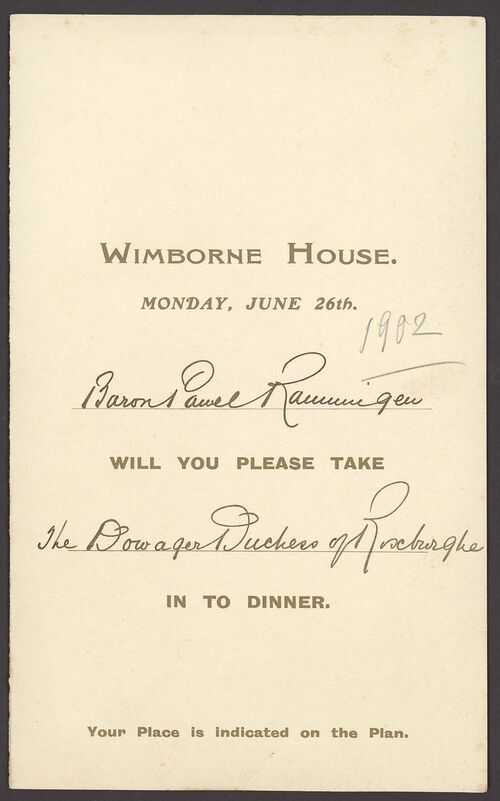 WIMBORNE HOUSE.
MONDAY, JUNE 26th.
1902
Baron Pawel Rammingen
WILL YOU PLEASE TAKE
The Dowager Duchess of Roxburghe
IN TO DINNER.
Your Place is indicated on the Plan.